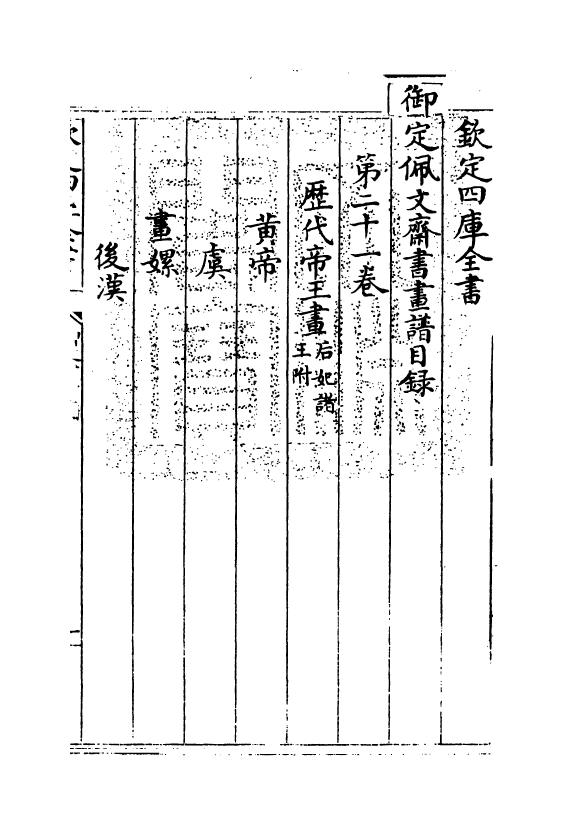 欽定四庫全書
御定佩文齋書畫譜目録
第二十一卷
歴代帝王畫后妃諸王附
黄帝
虞
畫嫘
後漢